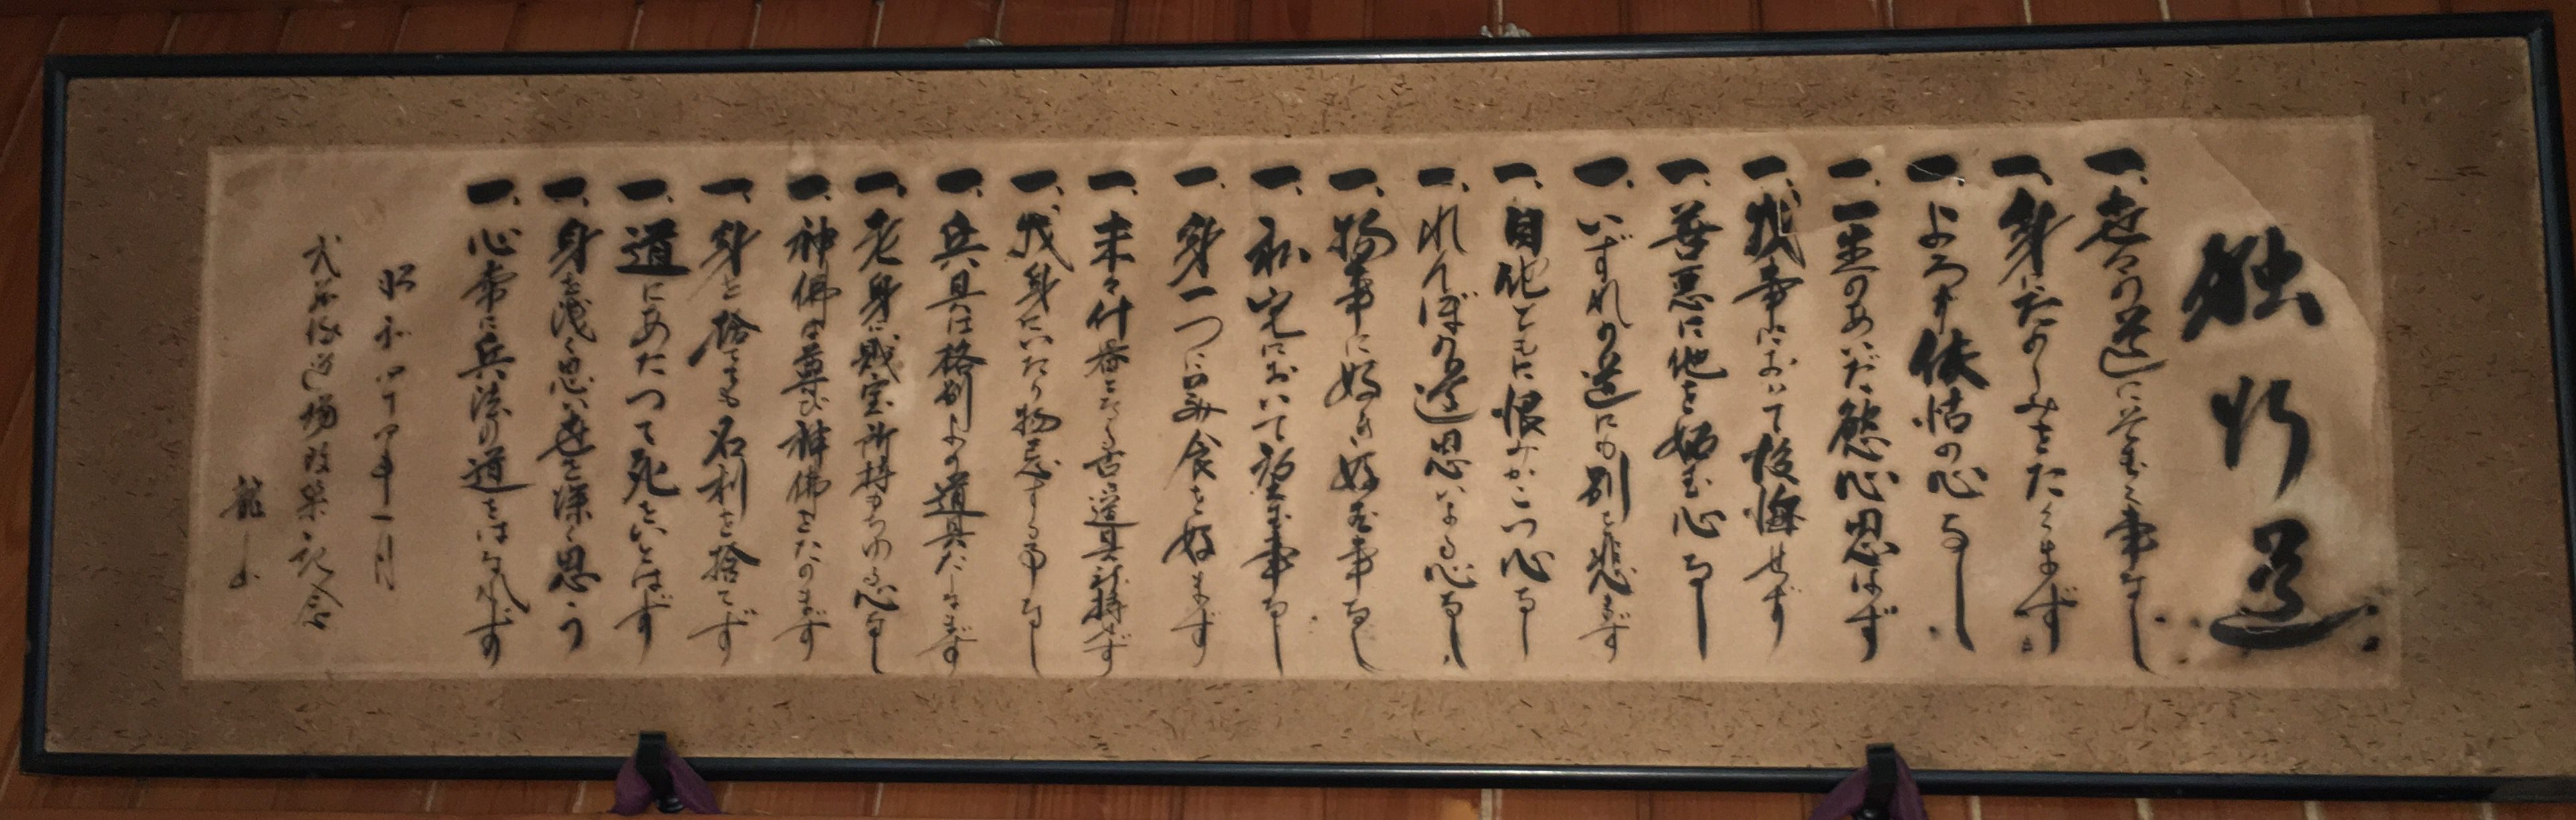 独行道
一、世々の道にそむく事なし
一、身にたのしみをたくまず
一、よろず依怙の心なし
一、一生のあいだ慾心思はず
一、我事において後悔せず
一、善悪に他を妬む心なし
一、いずれの道にも別を悲まず
一、自他ともに恨みかこつ心なし
一、れんぼの道思いよる心なし
一、物事に好き好む事なし
一、私宅において望む事なし
一、身一つに美食を好まず
一、末々什番となる古き道具所持せず
一、我身にいたり物忌する事なし
一、兵具は格別よの道具たしなまず
一、老身に財宝所持もちゆる心なし
一、神佛は尊し神佛をたのまず
一、身を捨ても名利を捨てず
一、道にあたつて死をいとはず
一、身を浅く思い世を深く思う
一、心常に兵法の道をはなれず
昭和四十四年一月
道場改築記念
龍山